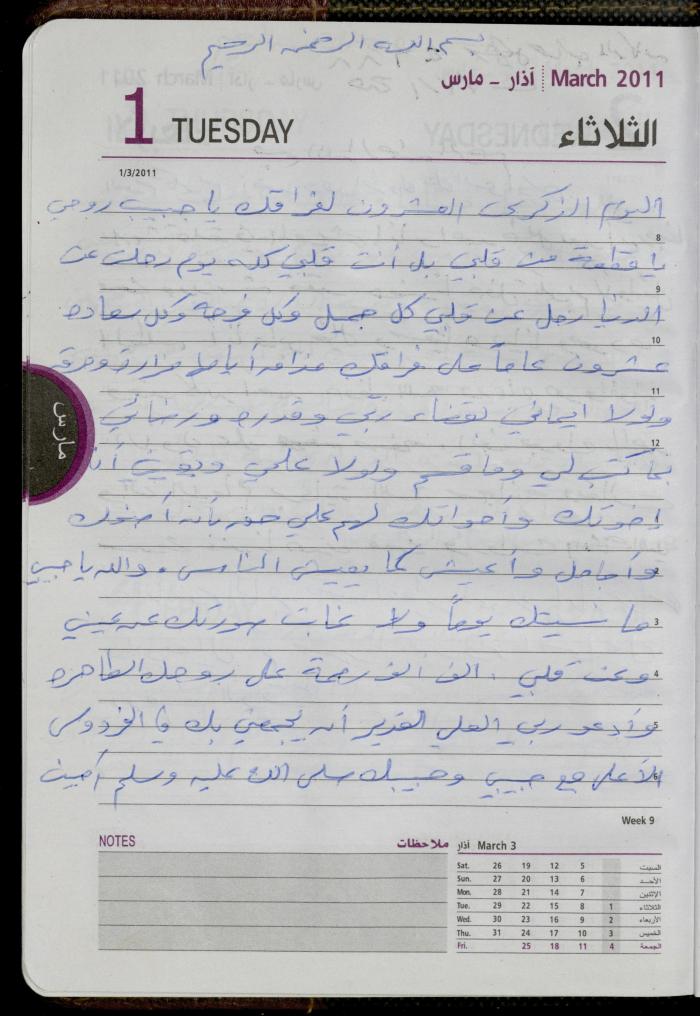 بسم الله الرحمن الرحيم
March 2011 آذار - مارس
1 TUESDAY الثلاثاء
1/3/2011
اليوم الذكرى العشرون لفراقك يا حبيب روحي
8
يا قطعة من قلبي بل أنت قلبي كله يوم رحلت عن
9
الدنيا رحل عن قلبي كل جميل وكل فرحة وكل سعاده
10
عشرون عاماً على فراقك مرارة وحرقة
11
ولولا ايماني بقضاء ربي وقدره ورضائي
12
بما كتب لي وما قسم ولولا علمي ويقيني أن
إخوتك وأخواتك لهم علي حق بأن
وأجامل وأعيش كما يعيش الناس. والله يا حبيبي
3
ما نسيتك يوماً ولا غابت صورتك عن عيني
4
وعن قلبي. الف الف رحمة على روحك الطاهره
5
وأدعو ربي العلي القدير أن يجمعني بك في الفردوس
6
الأعلى مع حبيبي وحبيبك صلى الله عليه وسلم أمين
Week 9
مارس
NOTES ملاحظات
March 3 آذار
Sat. 26 19 12 5 السبت
Sun. 27 20 13 6 الأحد
Mon. 28 21 14 7 الإثنين
Tue. 29 22 15 8 1 الثلاثاء
Wed. 30 23 16 9 2 الأربعاء
Thu. 31 24 17 10 3 الخميس
Fri. 25 18 11 4 الجمعة